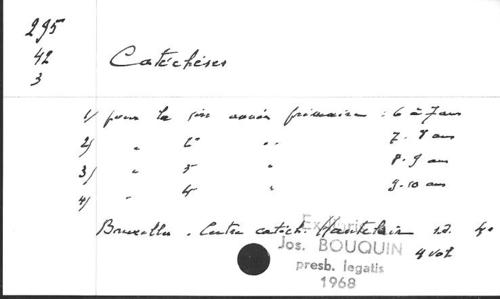 295
42
3
Catéchèses
1/ pour la 1re année primaire : 6 à 7 ans
2/ " 2e " " 7-8 ans
3/ " 3 " 8-9 ans
4/ " 4 " 9-10 ans
Bruxelles. Centre catéch. s.d. 4°
4 vol
Ex Libris
Jos. BOUQUIN
presb. legatis
1968